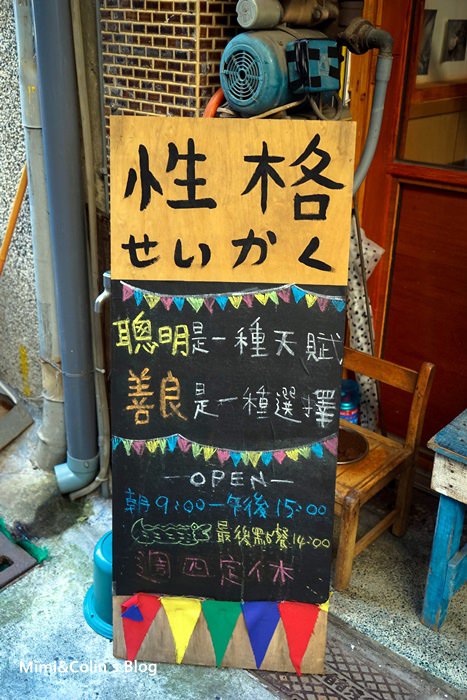 性格
せいかく
聰明是一種天賦
善良是一種選擇
—OPEN—
朝9:00—午後15:00
最後點餐14:00
週四定休
Mimi&Colin's Blog